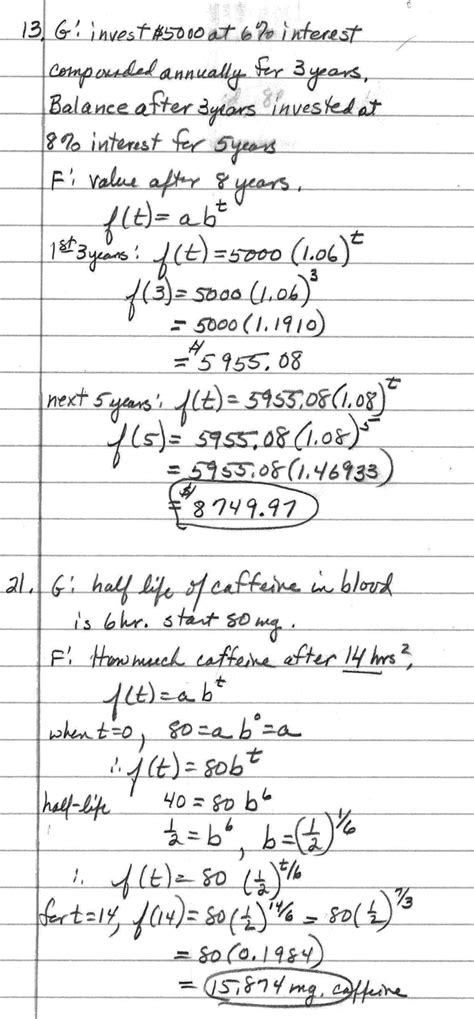 13. G: invest $5000 at 6% interest
compounded annually for 3 years.
Balance after 3 years invested at
8% interest for 5 years
F: value after 8 years.
f(t) = ab^t
1st 3 years: f(t) = 5000 (1.06)^t
f(3) = 5000 (1.06)^3
= 5000 (1.1910)
= $5955.08
next 5 years: f(t) = 5955.08 (1.08)^t
f(5) = 5955.08 (1.08)^5
= 5955.08 (1.46933)
= $8749.97
21. G: half life of caffeine in blood
is 6 hr. start 80 mg.
F: How much caffeine after 14 hrs?
f(t) = ab^t
when t=0, 80 = ab^0 = a
∴ f(t) = 80b^t
half-life 40 = 80 b^6
1/2 = b^6, b = (1/2)^1/6
∴ f(t) = 80 (1/2)^t/6
for t=14, f(14) = 80 (1/2)^14/6 = 80 (1/2)^7/3
= 80 (0.1984)
= 15.874 mg. caffeine